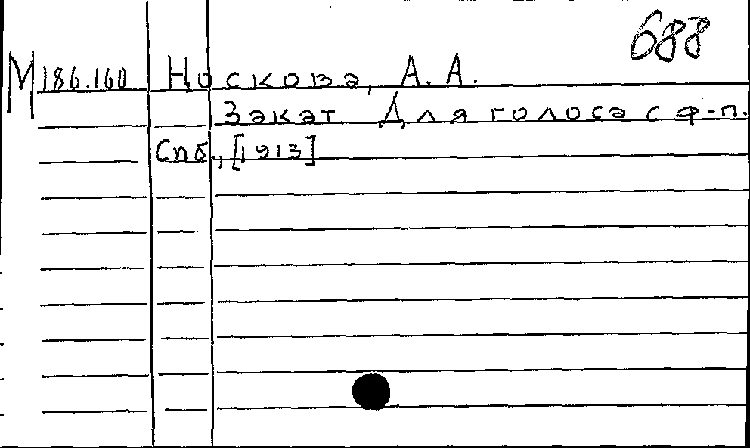 688
М 186.160 Носкова, А. А.
Закат Для голоса с ф-п.
Спб., [1913]